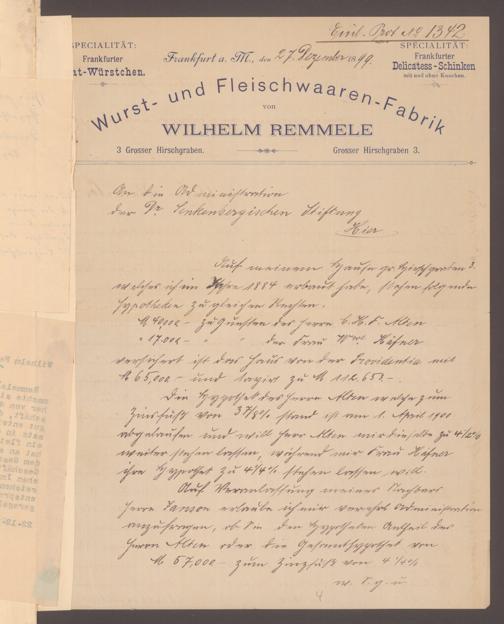 Einl. Prot No 1342
SPECIALITÄT:
Frankfurter
at-Würstchen.
Frankfurt a. M., den 27 Dezember 1899.
SPECIALITÄT:
Frankfurter
Delicatess-Schinken
mit und ohne Knochen.
Wurst- und Fleischwaaren-Fabrik
von
WILHELM REMMELE
3 Grosser Hirschgraben.
Grosser Hirschgraben 3.
An die Administration
der Dr. Senkenbergischen Stiftung
Hier
Auf meinem Hause gr. Hirschgraben 3.
welches ich im Jahre 1884 erbaut habe, stehen folgende
Hypotheken zu gleichen Rechten.
M 40000 - zu Gunsten des Herrn C. H. F. Alten
" 17.000 - " " der Frau Wwe
versichert ist das Haus von der Providentia mit
M 65,000 - und taxirt zu M 112.652 -.
Die Hypothek des Herrn Alten welche zum
Zinsfuß von 3 7/8 % stand ist am 1. April 1900
abgelaufen und will Herr Alten mir dieselbe zu
weiter stehen lassen, während mir Frau
ihre Hypothek zu 4 1/4 % stehen lassen will.
Auf Veranlassung meines Nachbars
Herrn erlaube ich mir verehrl. Administration
anzufragen, ob Sie den Hypotheken Antheil des
Herrn Alten oder die Gesammthypothek von
M 57,000 - zum Zinsfuß von 4 1/4 %
w. v. g. u